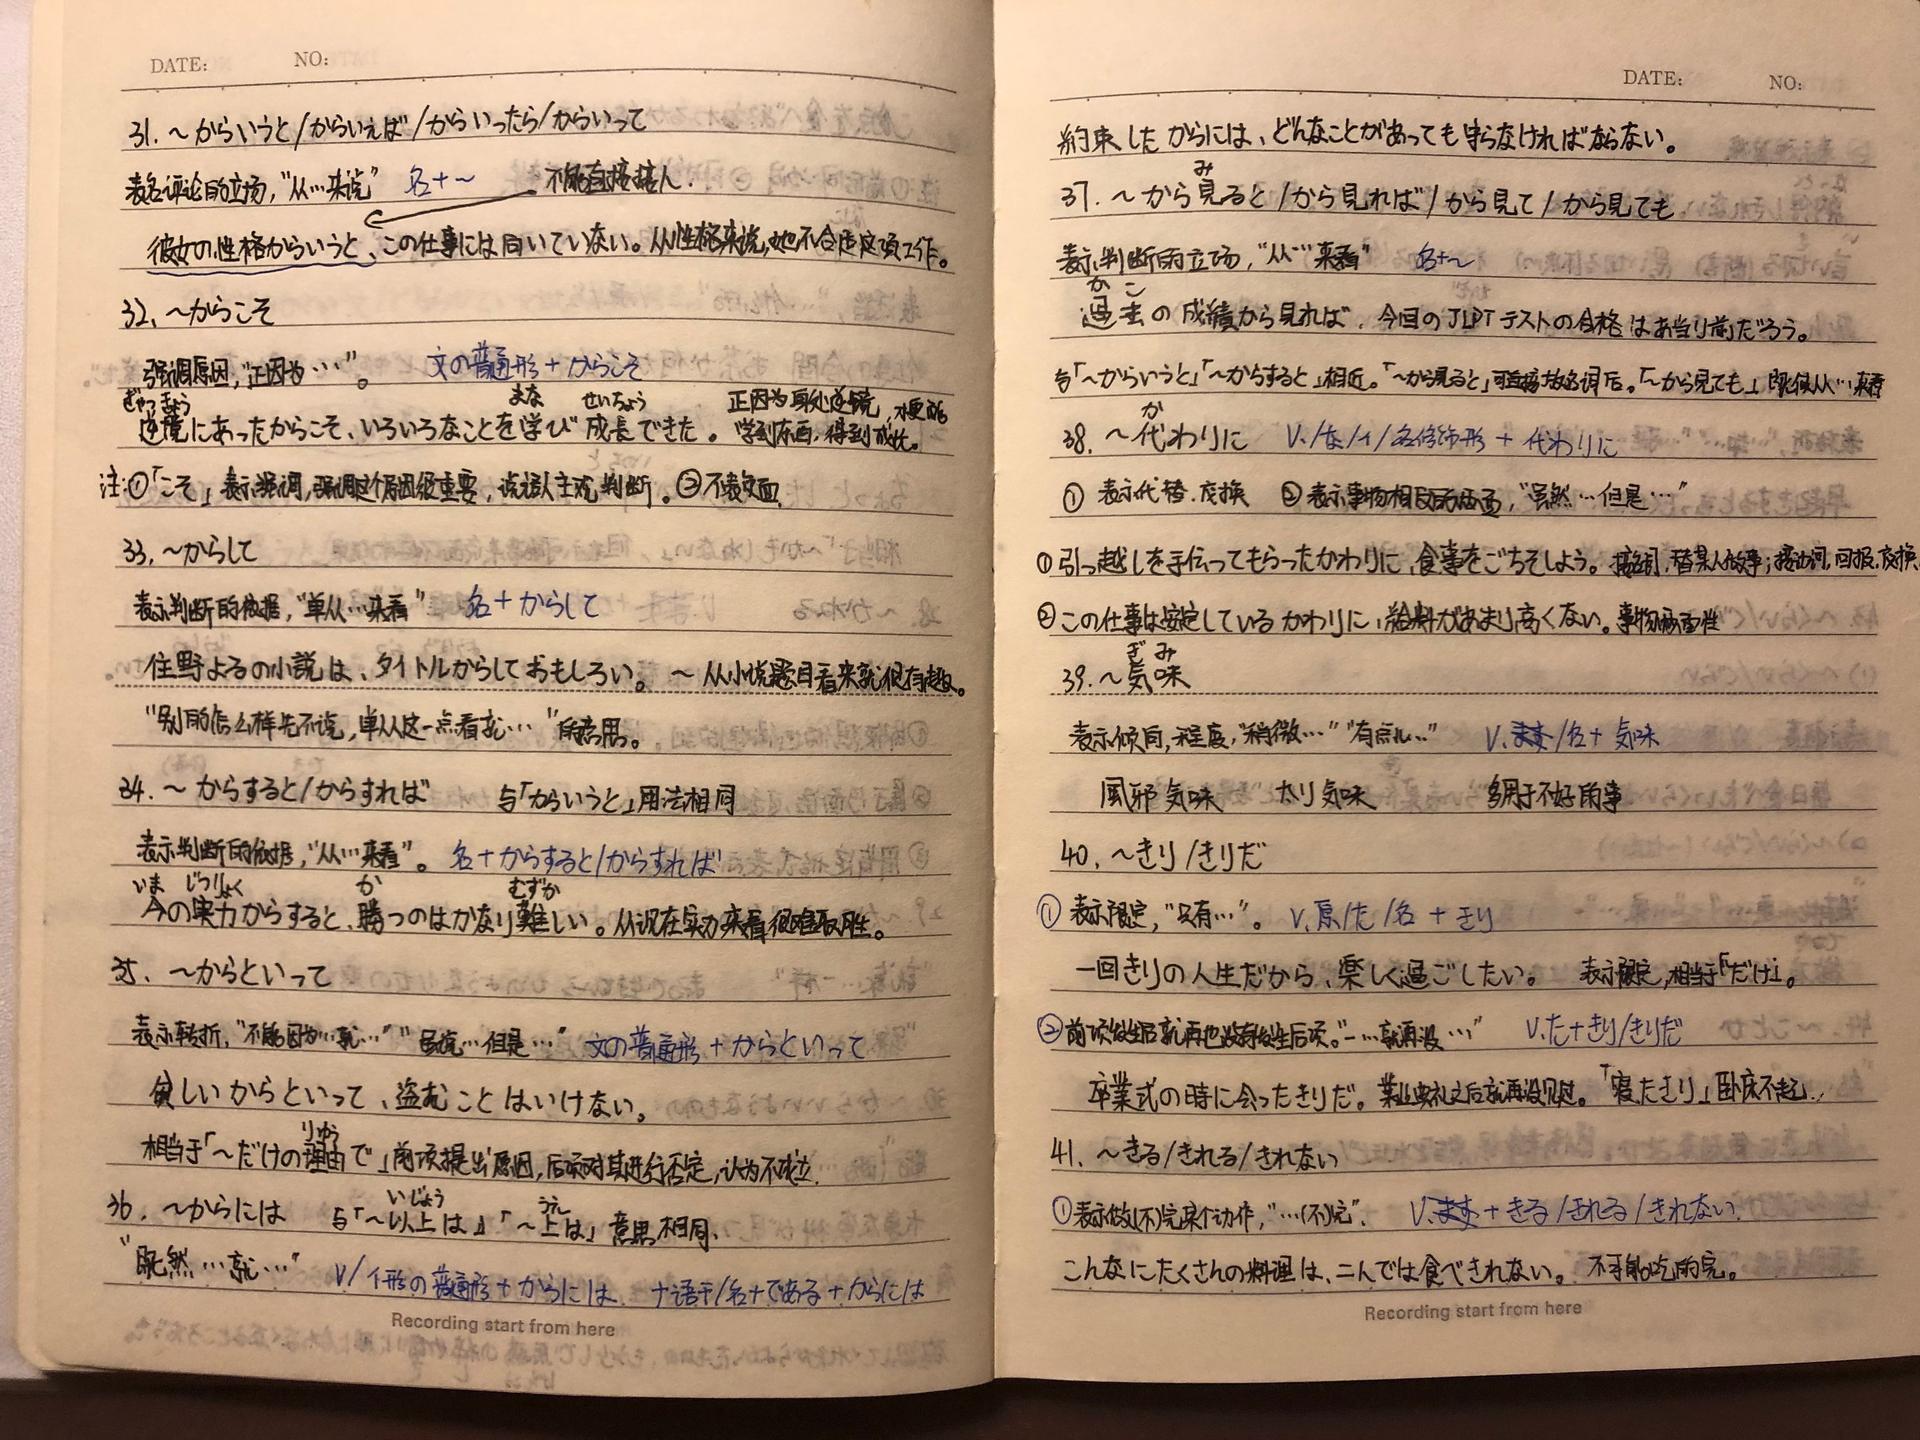 DATE: NO:
31. ～からいうと/からいえば/からいったら/からいって
表名评论的立场,“从…来说” 名+～ 不能直接接人.
彼女の性格からいうと、この仕事には向いていない。从性格来说,她不合适这项工作。
32. ～からこそ
强调原因,“正因为…”。 文の普通形+からこそ
ぎゃっきょう まな せいちょう 正因为身处逆境,才更能
逆境にあったからこそ、いろいろなことを学び成長できた。 学到东西,得到成长。
注:①「こそ」表示强调,强调这个原因很重要,说话人主观判断。②不表负面
33. ～からして
表示判断的依据,“单从…来看” 名+からして
住野よるの小説は、タイトルからしておもしろい。 ～从小说题目看来就很有趣。
“别的怎么样先不说,单从这一点看就…”的意思。
34. ～からすると/からすれば 与「からいうと」用法相同
表示判断的依据,“从…来看”。 名+からすると/からすれば
いま じつりょく か むずか
今の実力からすると、勝つのはかなり難しい。从现在实力来看很难取胜。
35. ～からといって
表示转折,“不能因为…就…” “虽说…但是…” 文の普通形+からといって
貧しいからといって、盗むことはいけない。
りゆう
相当于「～だけの理由で」前项提出原因,后项对其进行否定,认为不成立.
いじょう うえ
36. ～からには 与「～以上は」「～上は」意思相同.
“既然…就…” V/イ形の普通形+からには ナ语干/名+である+からには
Recording start from here
DATE: NO:
約束したからには、どんなことがあっても守らなければならない。
み
37. ～から見ると/から見れば/から見て/から見ても
表示判断的立场,“从…来看” 名+～
かこ
過去の成績から見れば、今回のJLPTテストの合格はあ当り前だろう。
与「～からいうと」「～からすると」相近。「～から見ると」可直接放名词后。「～から見ても」即使从…来看
か
38. ～代わりに V./な/イ/名修饰形+代わりに
① 表示代替.交换 ②表示事物相反的两面,“虽然…但是…”
①引っ越しを手伝ってもらったかわりに、食事をごちそしよう。 接名词,替某人做事;接动词,回报,交换.
②この仕事は安定しているかわりに、給料があまり高くない。事物两面性
ぎみ
39. ～気味
表示倾向,程度,“稍微…”“有点儿…” V.ます/名+気味
風邪気味 太り気味 多用于不好的事
40. ～きり/きりだ
① 表示限定,“只有…”。 V.原/た/名+きり
一回きりの人生だから、楽しく過ごしたい。 表示限定,相当于「だけ」。
②前项发生后就再也没有发生后项。“一…就再没…” V.た+きり/きりだ
卒業式の時に会ったきりだ。毕业典礼之后就再没见过。「寝たきり」卧床不起..
41. ～きる/きれる/きれない
①表示做(不)完某个动作,“…(不)完”. V.ます+きる/きれる/きれない.
こんなにたくさんの料理は、二人では食べきれない。 不可能吃的完。
Recording start from here